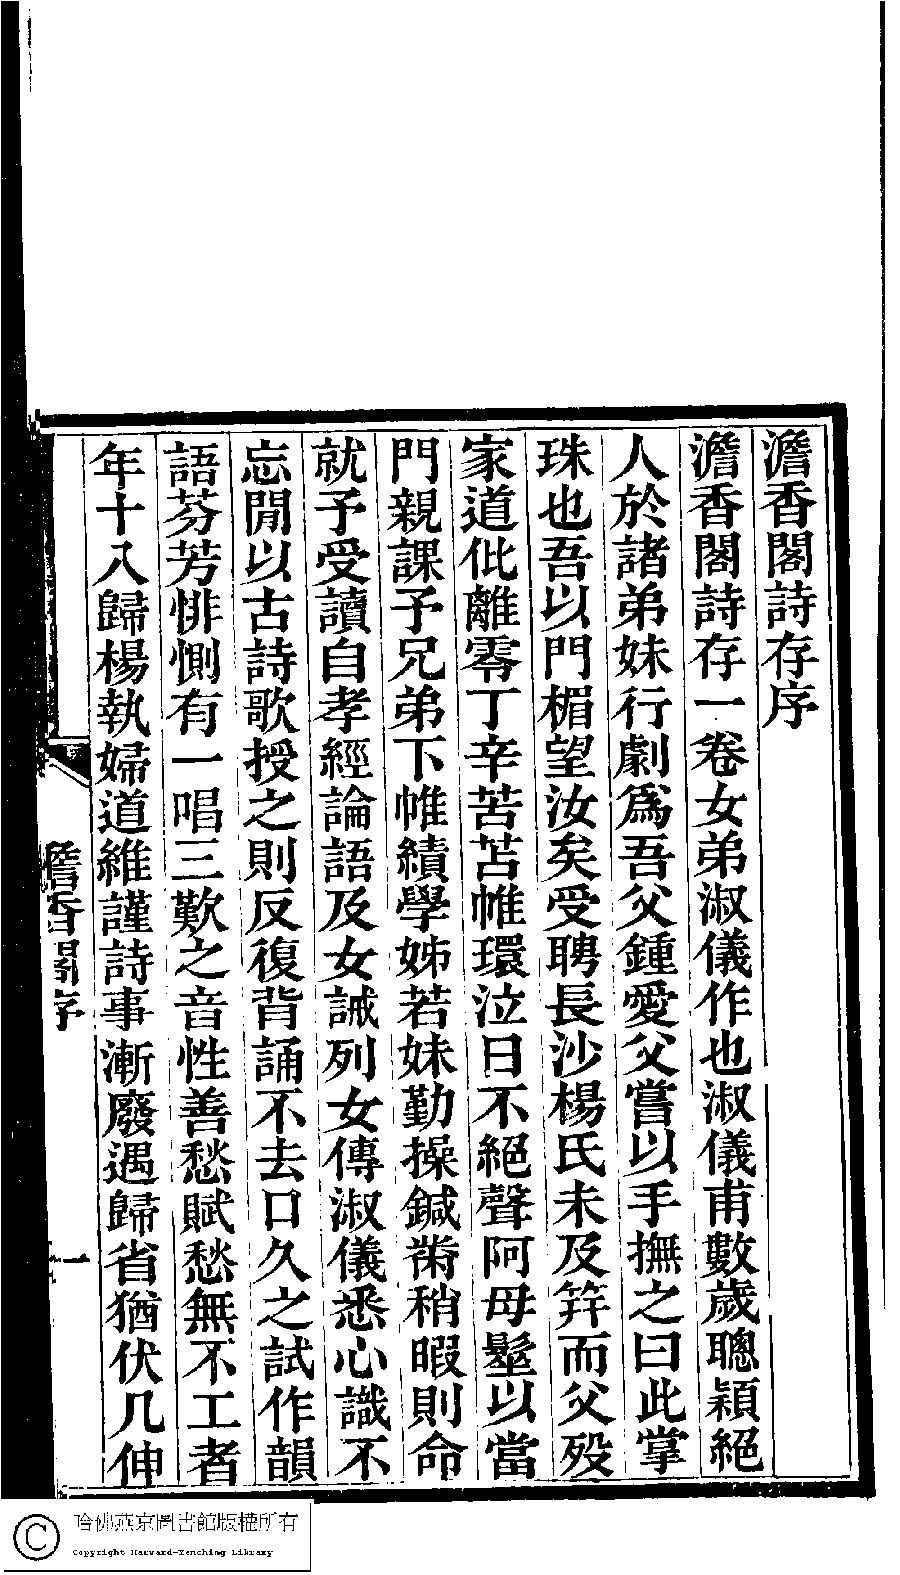 澹香閣詩存序
澹香閣詩存一卷女弟淑儀作也淑儀甫數歲聰穎絕
人於諸弟妹行劇爲吾父鍾愛父嘗以手撫之曰此掌
珠也吾以門楣望汝矣受聘長沙楊氏未及筓而父歿
家道仳離零丁辛苦苫帷環泣日不絕聲阿母髽以當
門親課予兄弟下帷績學姊若妹勤操鍼黹稍暇則命
就予受讀自孝經論語及女誡列女傳淑儀悉心識不
忘閒以古詩歌授之則反復背誦不去口久之試作韻
語芬芳悱惻有一唱三歎之音性善愁賦愁無不工者
年十八歸楊執婦道維謹詩事漸廢遇歸省猶伏几伸
澹香閣存
一
哈佛燕京圖書館版權所有
Copyright Harvard-Yenching Library